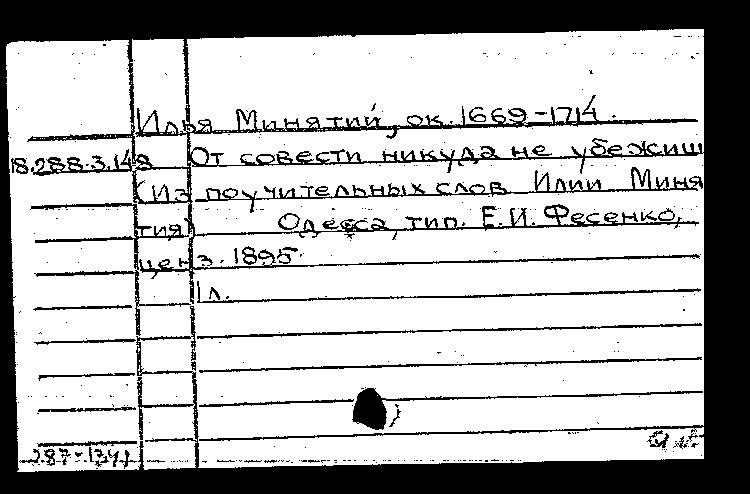 Илья Минятий, ок. 1669-1714.
18.288.3.148 От совести никуда не убежиш
(Из поучительных слов Илии Миня
тия) Одесса, тип. Е.И. Фесенко,
ценз. 1895.
1 л.